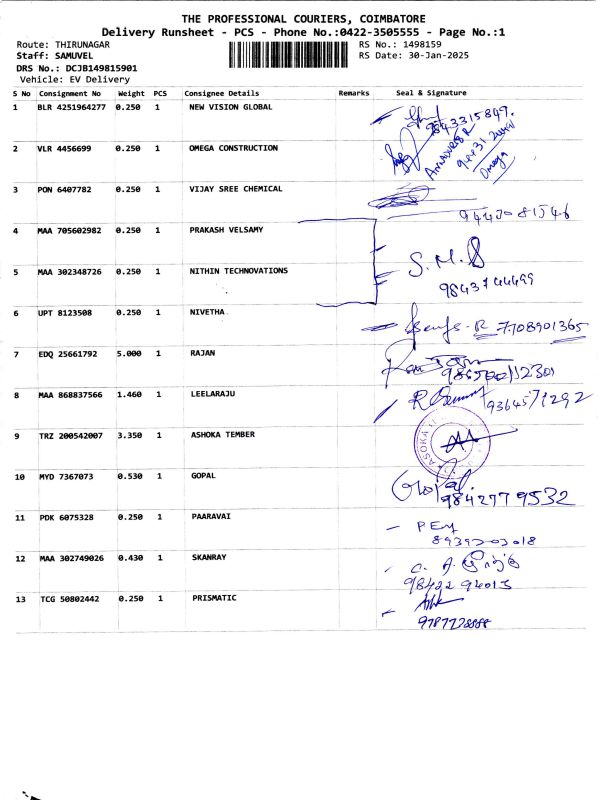 THE PROFESSIONAL COURIERS, COIMBATORE
Delivery Runsheet - PCS - Phone No.:0422-3505555 - Page No.:1
Route: THIRUNAGAR RS No.: 1498159
Staff: SAMUVEL RS Date: 30-Jan-2025
DRS No.: DCJB149815901
Vehicle: EV Delivery
S No Consignment No Weight PCS Consignee Details Remarks Seal & Signature
1 BLR 4251964277 0.250 1 NEW VISION GLOBAL 9843315849.
2 VLR 4456699 0.250 1 OMEGA CONSTRUCTION Omega
3 PON 6407782 0.250 1 VIJAY SREE CHEMICAL 9443081546
4 MAA 705602982 0.250 1 PRAKASH VELSAMY S.M.S
5 MAA 302348726 0.250 1 NITHIN TECHNOVATIONS 9843744499
6 UPT 8123508 0.250 1 NIVETHA R 7708901365
7 EDQ 25661792 5.000 1 RAJAN
8 MAA 868837566 1.460 1 LEELARAJU 9364571292
9 TRZ 200542007 3.350 1 ASHOKA TEMBER ASOKA
10 MYD 7367073 0.530 1 GOPAL Gopal 9842779532
11 PDK 6075328 0.250 1 PAARAVAI
12 MAA 302749026 0.430 1 SKANRAY 98422 94013
13 TCG 50802442 0.250 1 PRISMATIC